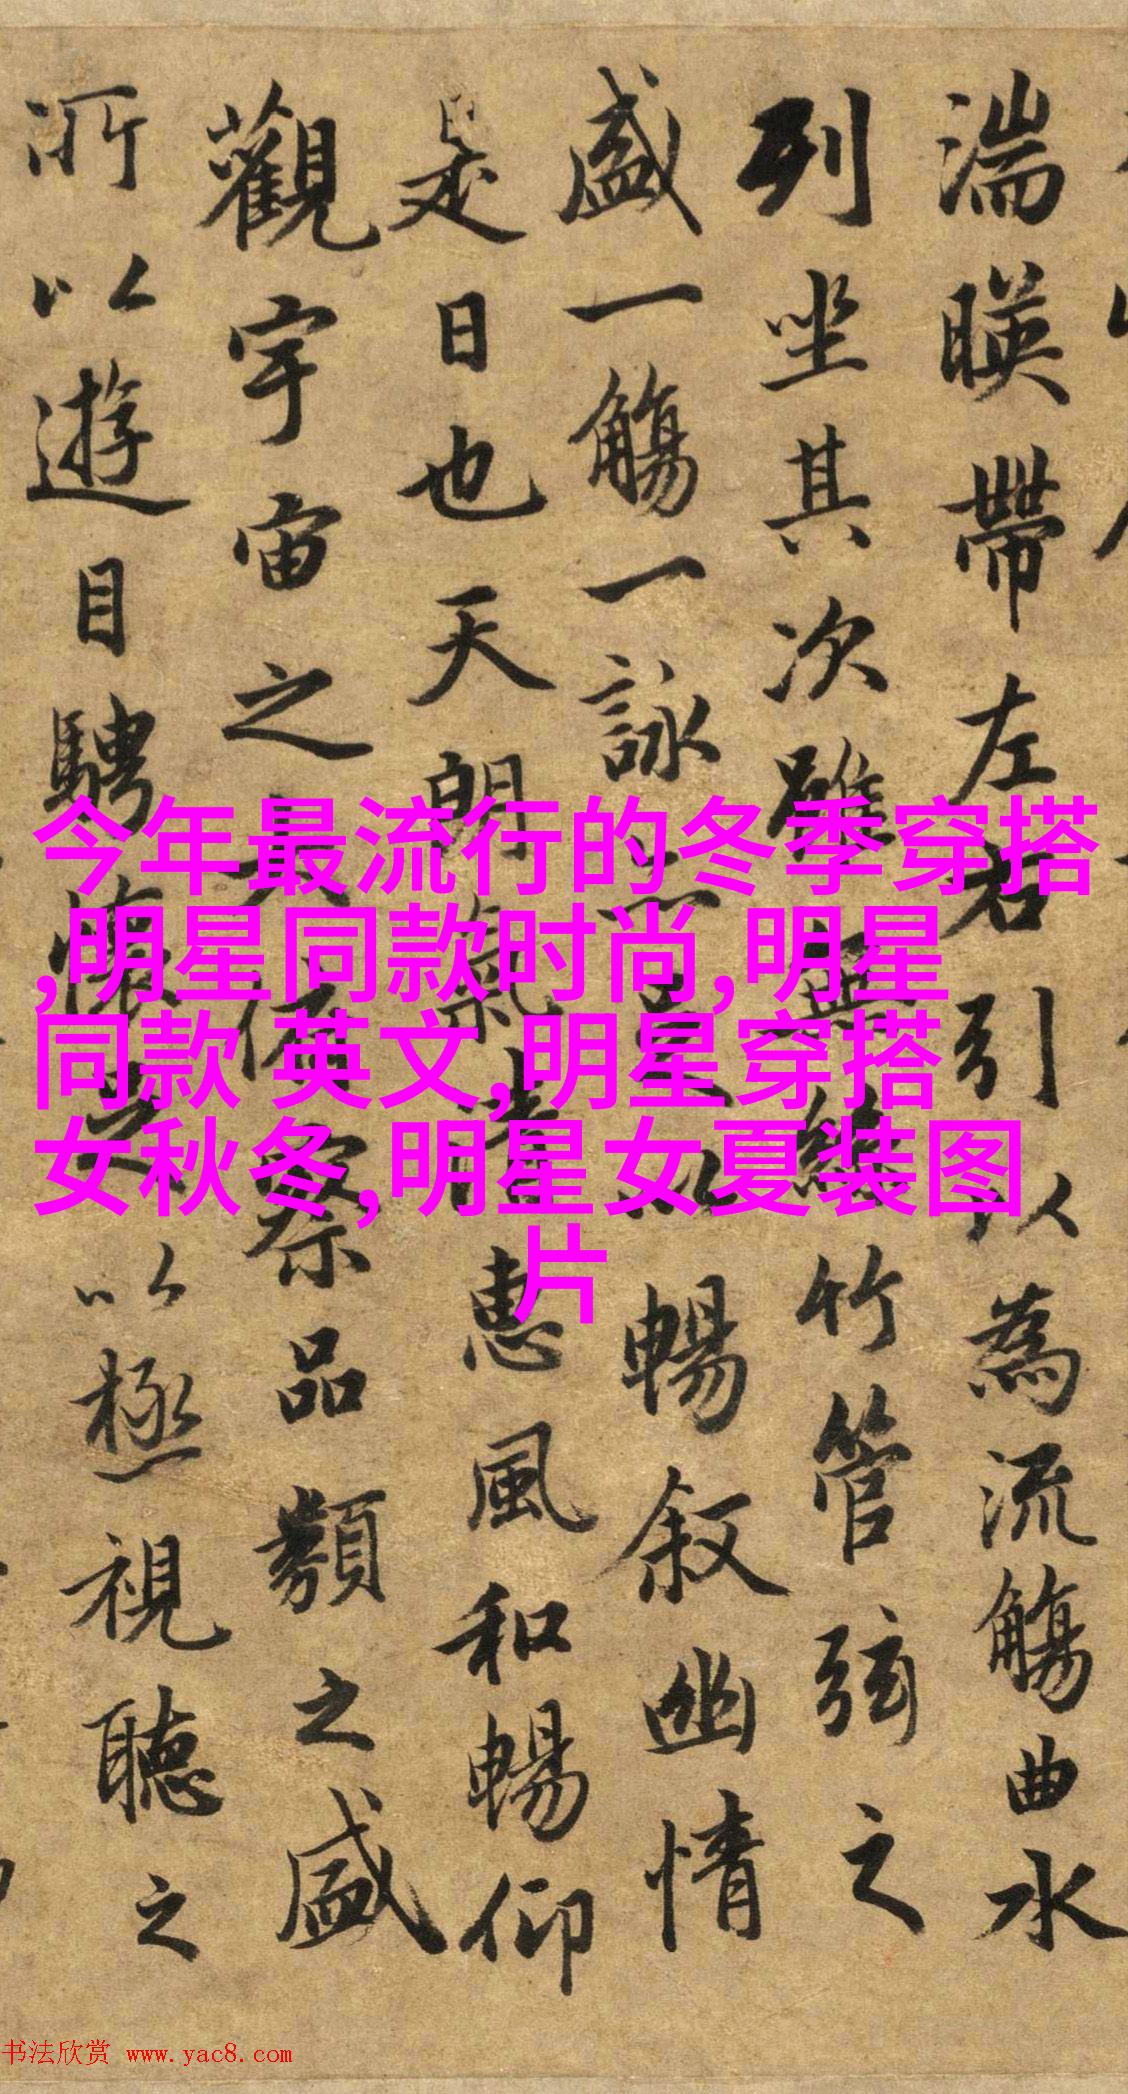 湍暎帶左右引以為流觴曲水
列坐其次雖無絲竹管弦之
盛一觴一詠亦足以暢叙幽情
是日也天朗氣清惠風和暢仰
觀宇宙之大俯察品類之盛
所以遊目騁懷足以極視聽之
今年最流行的冬季穿搭
,明星同款时尚,明星
同款 英文,明星穿搭
女秋冬,明星女夏装图
片
书法欣赏 www.yac8.com